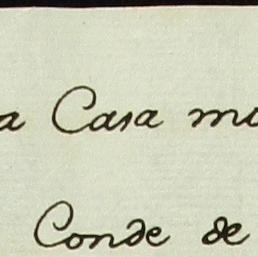 a Casa mu
Conde de